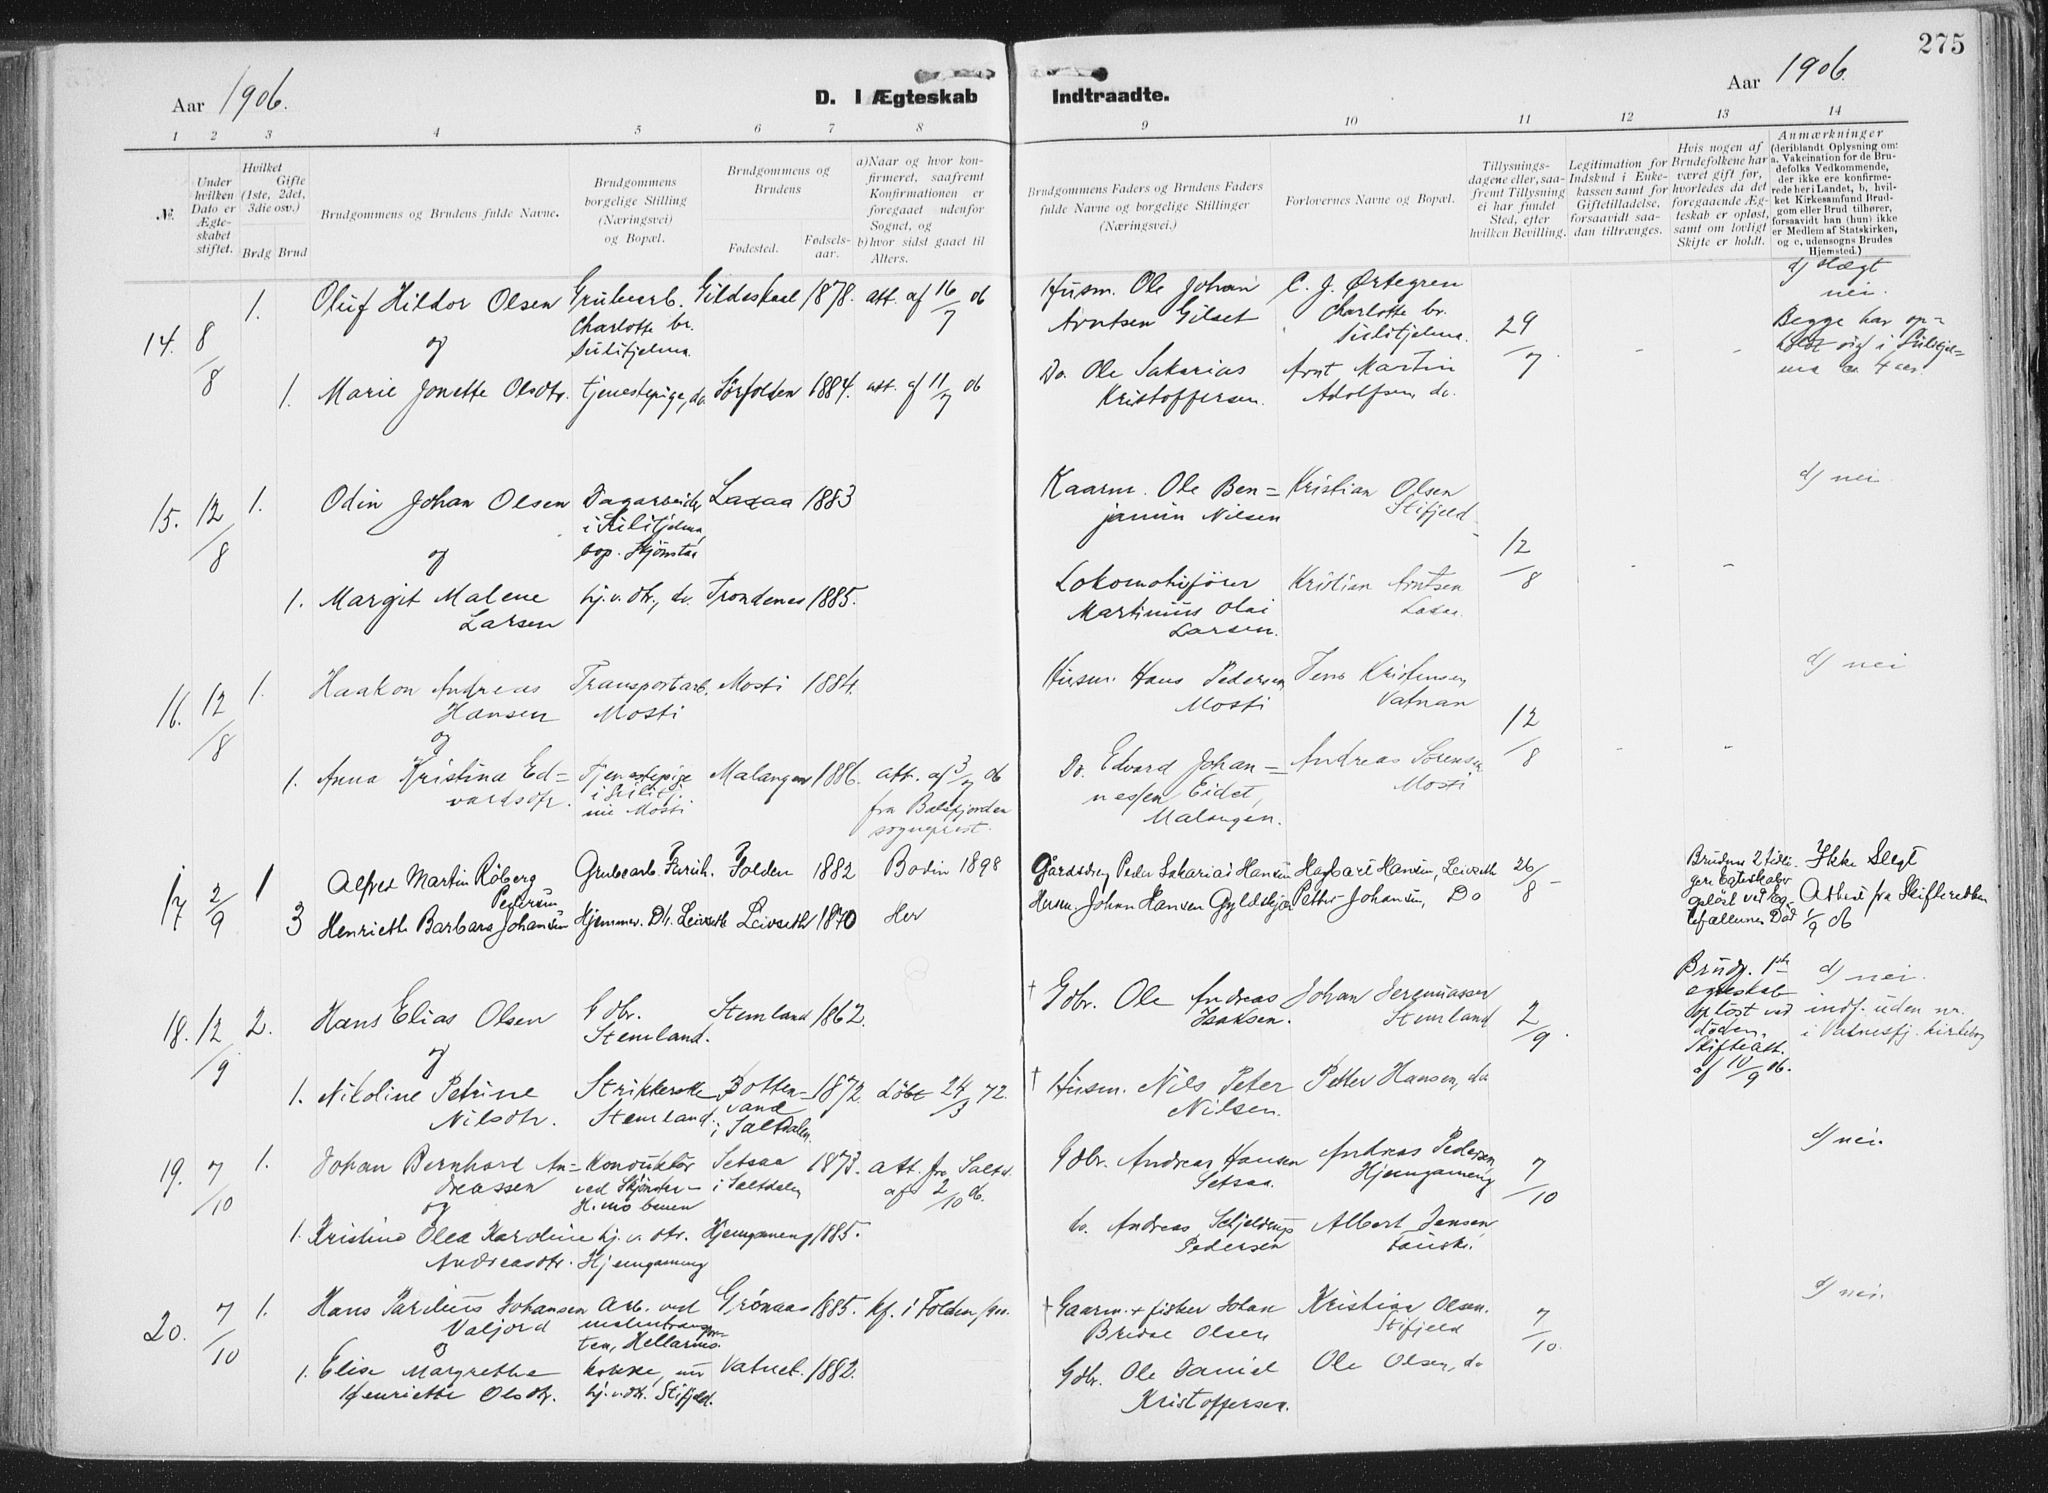 275
Aar 1906.
D. I Ægteskab Indtraadte.
Aar 1906.
1 2 3 4 5 6 7 8 9 10 11 12 13 14
№.
Under hvilken Dato er Ægteskabet stiftet.
Hvilket Gifte (1ste, 2det, 3die osv.)
Brdg Brud
Brudgommens og Brudens fulde Navne.
Brudgommens borgelige Stilling (Næringsvei) og Bopæl.
Brudgommens og Brudens
Fødested.
Fødselsaar.
a) Naar og hvor konfirmeret, saafremt Konfirmationen er foregaaet udenfor Sognet, og
b) hvor sidst gaaet til Alters.
Brudgommens Faders og Brudens Faders fulde Navne og borgelige Stillinger (Næringsvei.)
Forlovernes Navne og Bopæl.
Tillysningsdagene eller, saafremt Tillysning ei har fundet Sted, efter hvilken Bevilling.
Legitimation for Indskud i Enkekassen samt for Giftetilladelse, forsaavidt saadan tiltrænges.
Hvis nogen af Brudefolkene har været gift før, hvorledes da det foregaaende Ægteskab er opløst, samt om lovligt Skifte er holdt.
Anmærkninger (deriblandt Oplysning om: a. Vakcination for de Brudefolks Vedkommende, der ikke ere konfirmerede her i Landet, b, hvilket Kirkesamfund Brudgom eller Brud tilhører, forsaavidt han (hun) ikke er Medlem af Statskirken, og c, udensogns Brudes Hjemsted.)
14. 8/8 1. Oluf Hildor Olsen Grubearb. Gildeskaal 1878. att. af 16/7 06 Husm. Ole Johan C. J. Örtegren d) slægt
Charlotte br. Arntsen Gilset Charlotte br. 29/7 nei.
og Sulitjelma Sulitjelma. Begge har op-
holdt sig i Sulitjel-
1. Marie Jonette Olsdtr. tjenestepige, do. Sörfolden 1884. att. af 11/7 06 Do. Ole Sakarias Arnt Martin ma ca. 4 aar.
Kristoffersen. Adolfsen, do.
15. 12/8 1. Odin Johan Olsen Dagarbeider Laxaa 1883 Kaarm. Ole Ben= Kristian Olsen d) nei.
i Sulitjelma, jamin Nilsen Stifjeld
og bop. Skjönstaa 12/8
1. Margit Malene hj.v. dtr., do. Trondenes 1885. Lokomotivförer Kristian Arntsen
Larsen Martinus Olai Laxaa.
Larsen.
16. 12/8 1. Haakon Andreas Transportarb. Mosti 1884. Husm. Hans Pedersen Jens Kristensen d) nei
Hansen Mosti Mosti Vatnan
og 12/8
1. Anna Kristina Ed= Tjenestepige Malangen 1886. att. af 3/7 06 Do. Edvard Johan= Andreas Sörensen
vardsdtr. i Sulitj. fra Balsfjorden nessen Eidet, Mosti
nu Mosti sogneprest. Malangen.
17 2/9 1 Alfred Martin Röberg Grubearb. Furuh. Folden 1882 Bodin 1898 Gårdsdreng Peder Sakarias Hansen Hagbart Hansen, Leivseth 26/8 Brudens 2 tidli- Ikke Slegt
Pedersen gere Egteskaber
3 Henriette Barbara Johansen Hjemmev. Dtr. Leivseth Leivseth 1870 Her Husm. Johan Hansen Gyldskjær Petter Johansen, Do oplöst ved Eg- Attest fra Skifteretten
tefællernes Död 1/9 06
18. 12/9 2. Hans Elias Olsen Gdbr. Stemland 1862. † Gdbr. Ole Andreas Johan Jeremiassen 2/9 Brudg. 1ste d) nei.
Stemland. Isaksen. Stemland egteskab
og oplöst ved indf. uden nr.
döden. i Vatnesfj. kirkebog
1. Nikoline Petrine Strikkerske, Botten- 1872. döbt 24/3 72. † Husm. Nils Peter Petter Hansen, do Skifteatt.
Nilsdtr. Stemland. vand Nilsen. af 10/9 06.
i Saltdalen.
19. 7/10 1. Johan Bernhard An= Konduktör Setsaa 1873. att. fra Saltd. Gdbr. Andreas Hansen Andreas Pedersen 7/10 d) nei.
dreassen ved Skjönstu- i Saltdalen af 2/10 06. Setsaa. Hjemgameng
og H.mo banen
1. Kristine Olea Karoline hj. v. dtr. Hjemgameng 1885. do. Andreas Schjeldrup Albert Jensen,
Andreasdtr. Hjemgameng Pedersen Fauske.
20. 7/10 1. Hans Parelius Johansen Arb. ved Grönaas 1885. kf. i Folden, 1900. † Gaarm. + fisker Johan Kristian Olsen. 7/10. d) nei.
Valjord malmtranspor- Bredal Olsen Stifjeld
og ten, Hellarmo.
1. Elise Margrethe kokke, nu Vatnet. 1882. Gdbr. Ole Daniel Ole Olsen, do
Henriette Olsdtr. hj.v. dtr. Stifjeld. Kristoffersen.